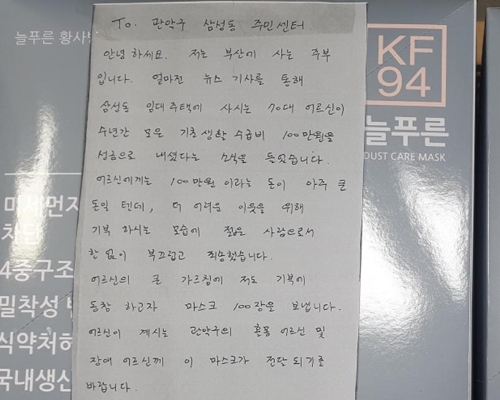 늘푸른 황사방
KF
94
늘푸른
DUST CARE MASK
미세먼지
차단
4중구조
밀착성
식약처허
국내생산
To. 관악구 삼성동 주민센터.
안녕하세요. 저는 부산에 사는 주부
입니다. 얼마전 뉴스 기사를 통해
삼성동 임대주택에 사시는 70대 어르신이
수년간 모은 기초생활 수급비 100만원을
성금으로 내셨다는 소식을 들었습니다.
어르신에게는 100만원 이라는 돈이 아주 큰
돈일 텐데, 더 어려운 이웃을 위해
기부 하시는 모습에 젊은 사람으로서
한 없이 부끄럽고 죄송했습니다.
어르신의 큰 가르침에 저도 기부에
동참 하고자 마스크 100장을 보냅니다.
어르신이 계시는 관악구의 홀몸 어르신 및
장애 어르신께 이 마스크가 전달 되기를
바랍니다.